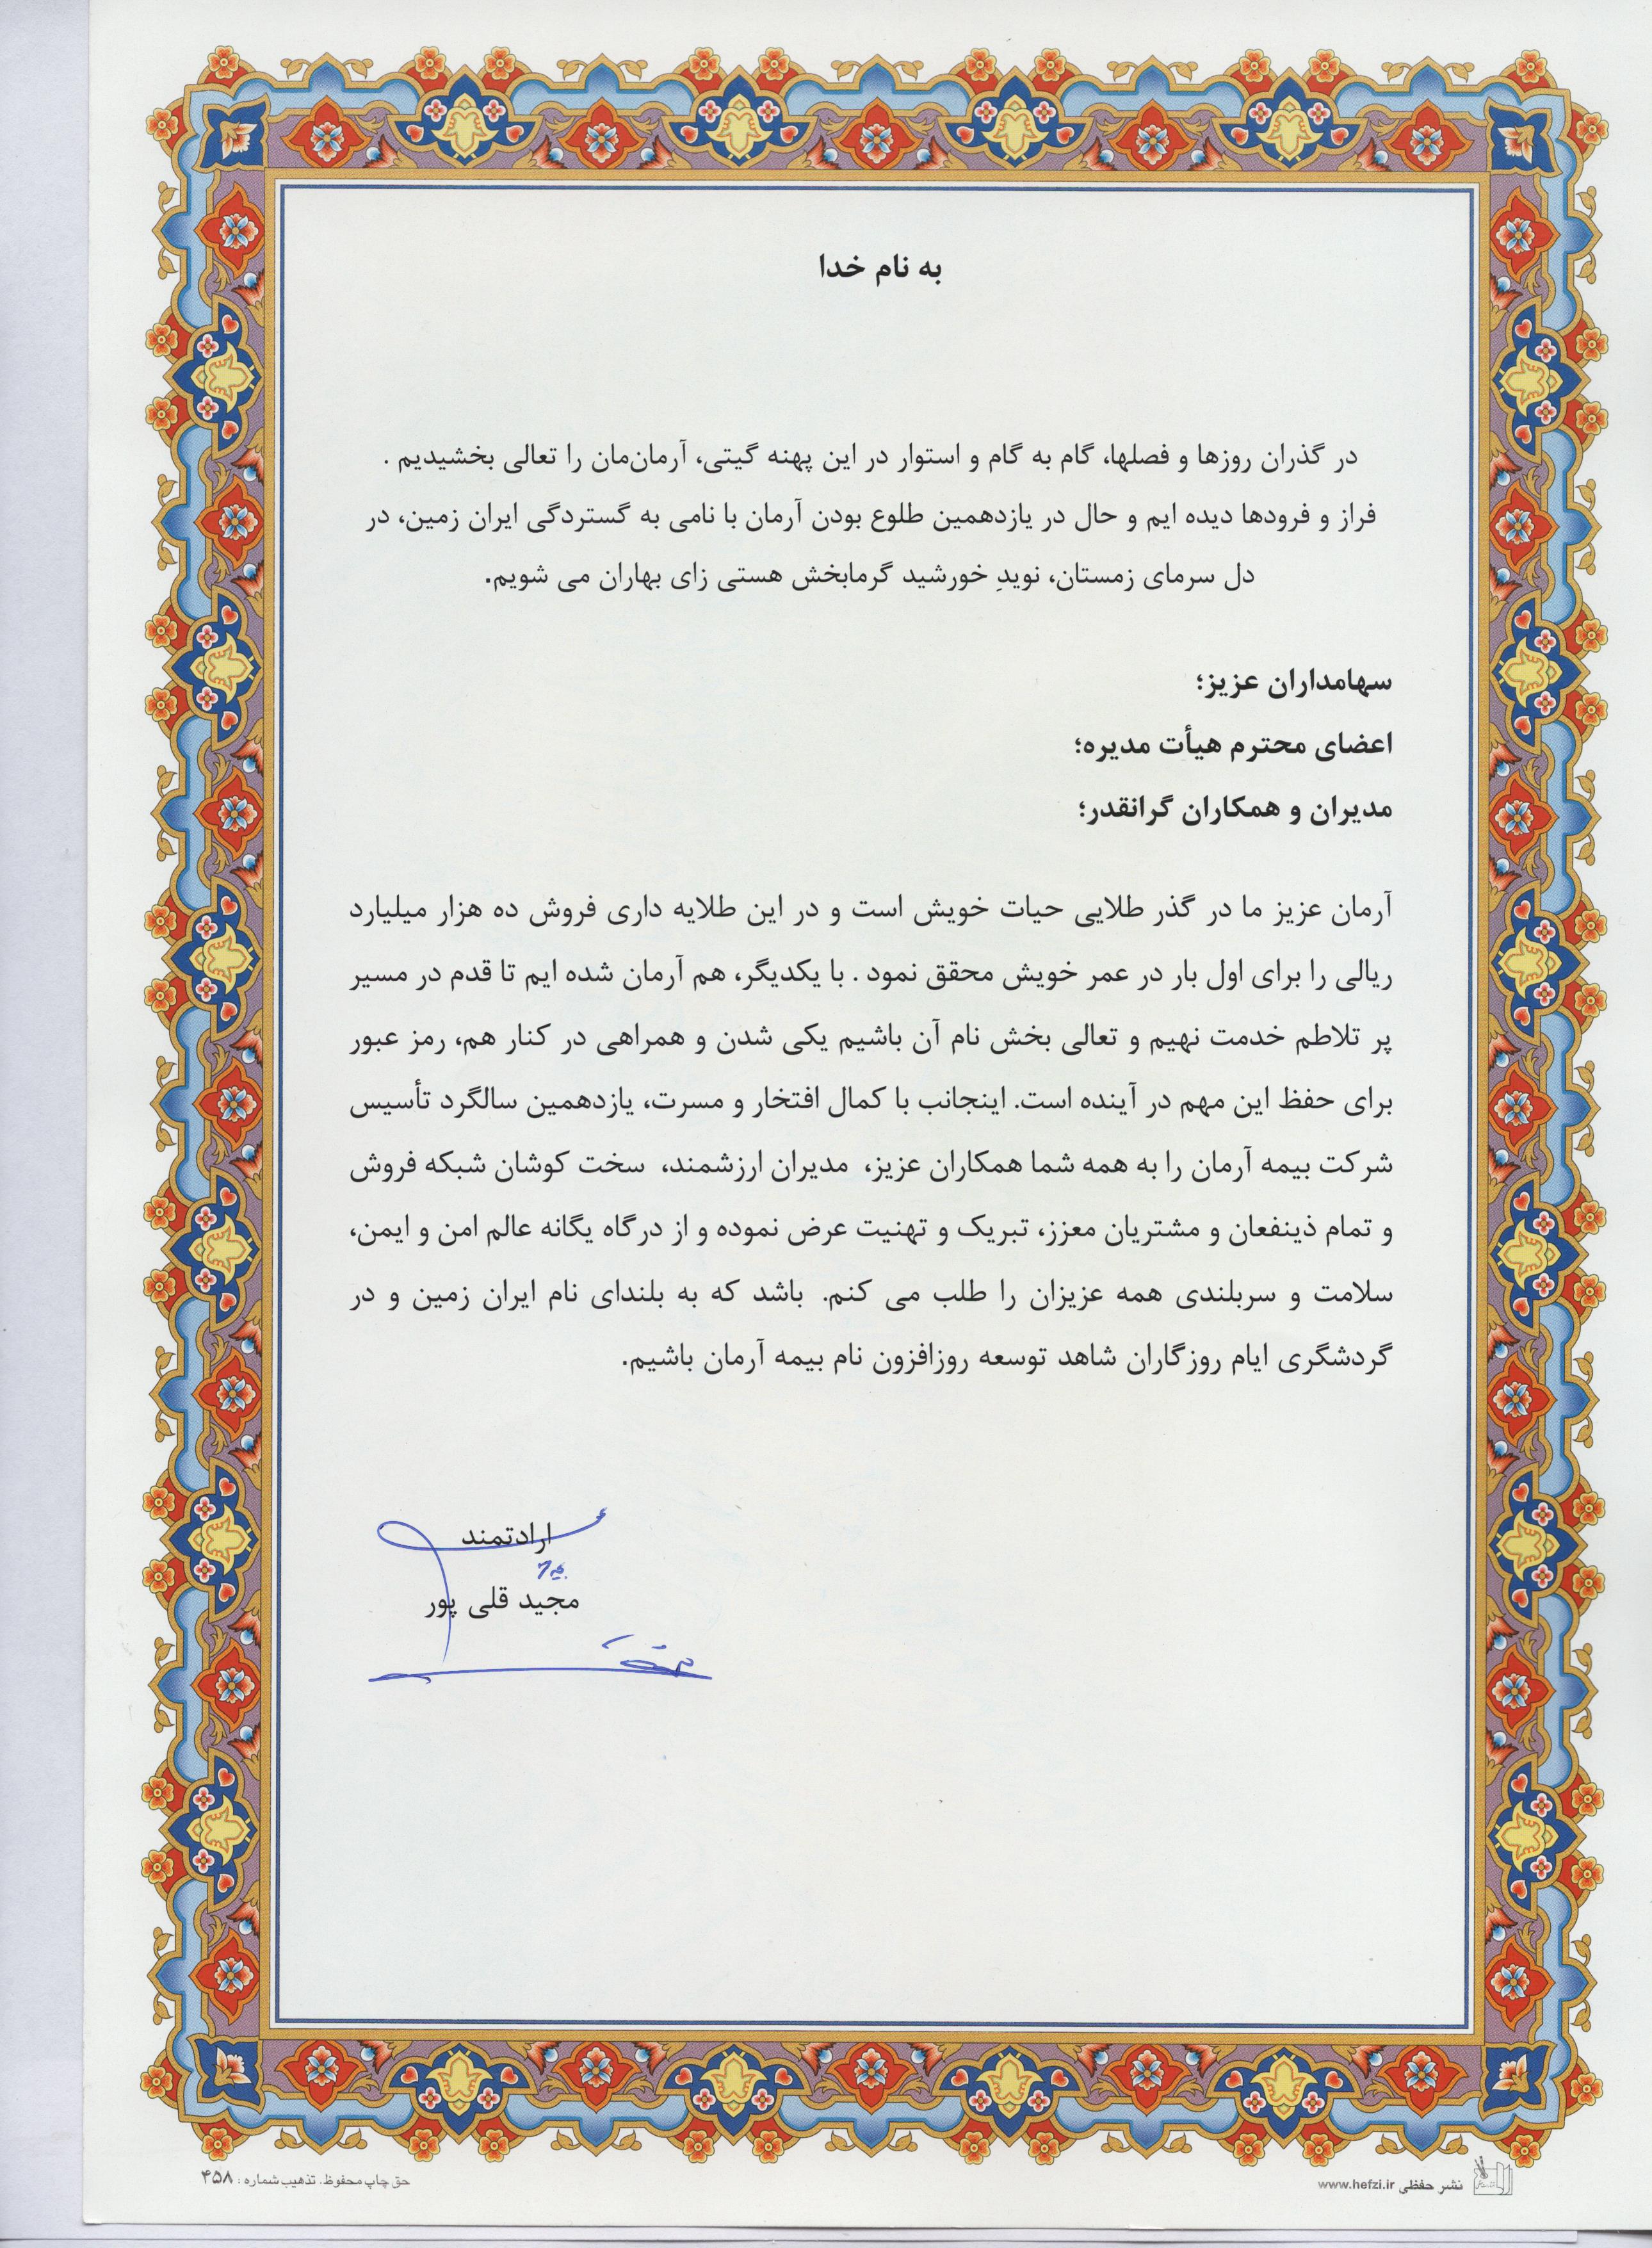 به نام خدا
در گذران روزها و فصلها، گام به گام و استوار در این پهنه گیتی، آرمان‌مان را تعالی بخشیدیم .
فراز و فرودها دیده ایم و حال در یازدهمین طلوع بودن آرمان با نامی به گستردگی ایران زمین، در
دل سرمای زمستان، نویدِ خورشید گرمابخش هستی زای بهاران می شویم.
سهامداران عزیز؛
اعضای محترم هیأت مدیره؛
مدیران و همکاران گرانقدر؛
آرمان عزیز ما در گذر طلایی حیات خویش است و در این طلایه داری فروش ده هزار میلیارد
ریالی را برای اول بار در عمر خویش محقق نمود . با یکدیگر، هم آرمان شده ایم تا قدم در مسیر
پر تلاطم خدمت نهیم و تعالی بخش نام آن باشیم یکی شدن و همراهی در کنار هم، رمز عبور
برای حفظ این مهم در آینده است. اینجانب با کمال افتخار و مسرت، یازدهمین سالگرد تأسیس
شرکت بیمه آرمان را به همه شما همکاران عزیز، مدیران ارزشمند، سخت کوشان شبکه فروش
و تمام ذینفعان و مشتریان معزز، تبریک و تهنیت عرض نموده و از درگاه یگانه عالم امن و ایمن،
سلامت و سربلندی همه عزیزان را طلب می کنم. باشد که به بلندای نام ایران زمین و در
گردشگری ایام روزگاران شاهد توسعه روزافزون نام بیمه آرمان باشیم.
ارادتمند
مجید قلی پور
نشر حفظی www.hefzi.ir
حق چاپ محفوظ. تذهیب شماره : ۴۵۸